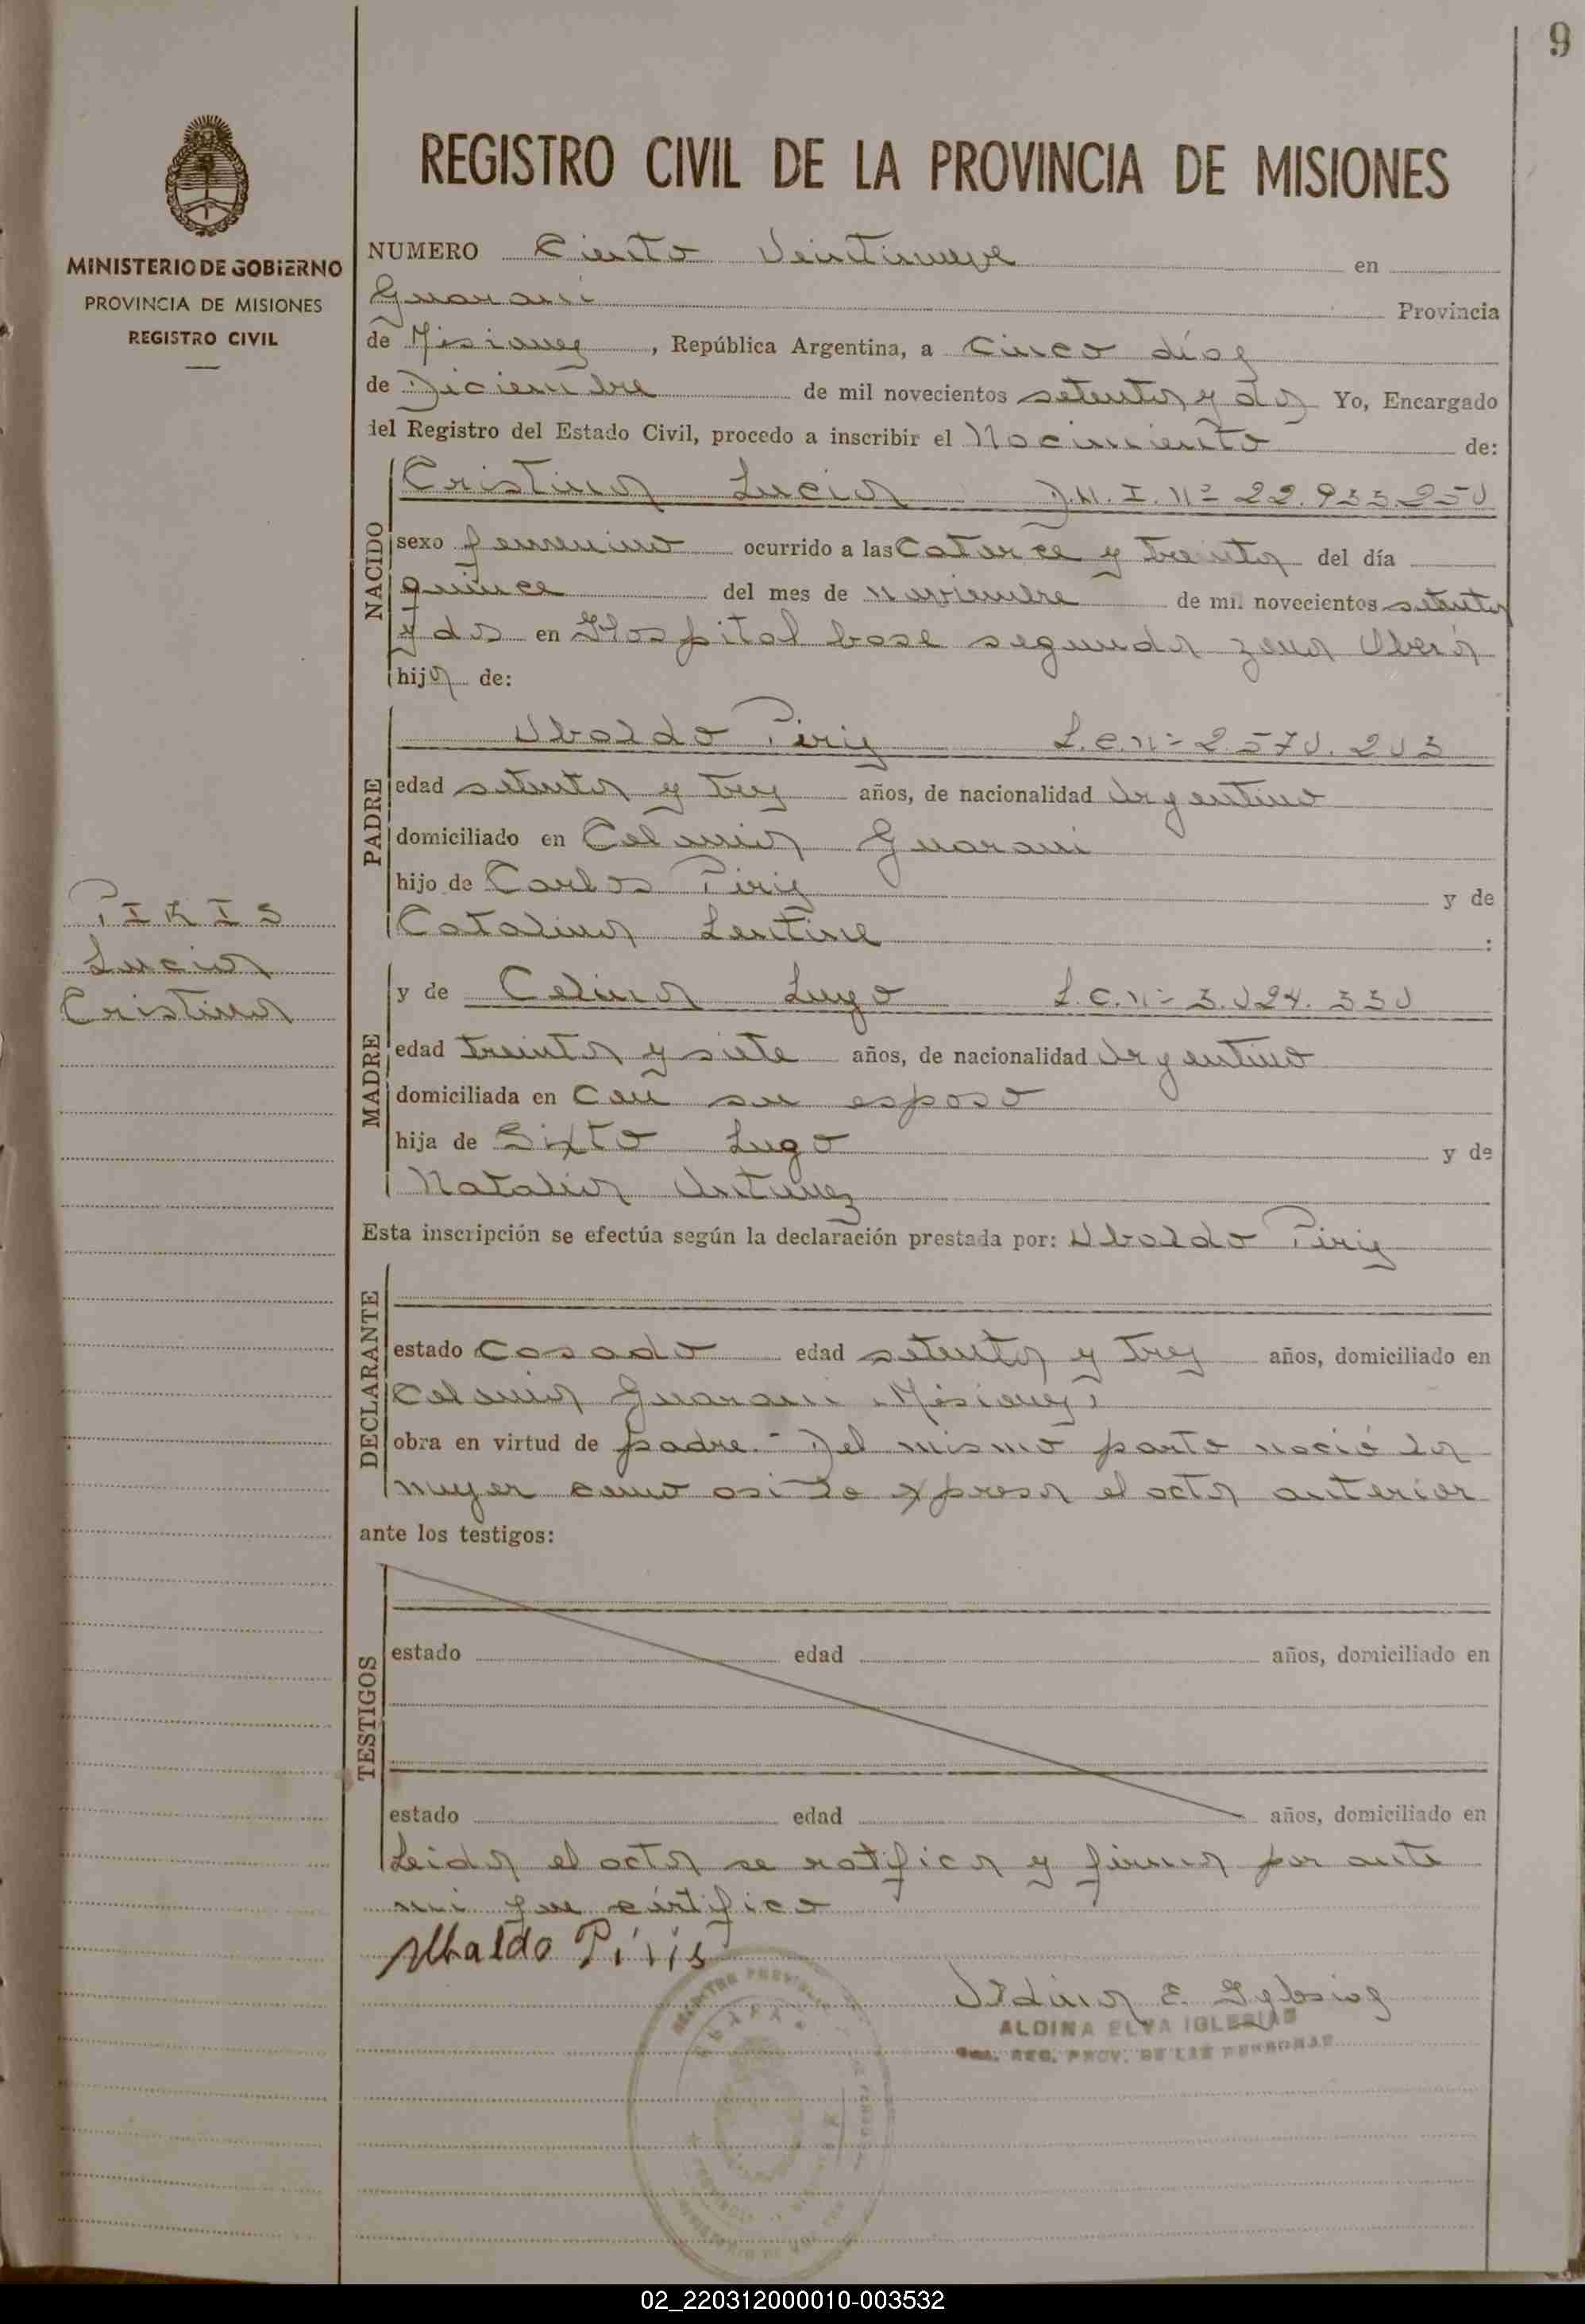 9
REGISTRO CIVIL DE LA PROVINCIA DE MISIONES
MINISTERIO DE GOBIERNO
PROVINCIA DE MISIONES
REGISTRO CIVIL
NUMERO Ciento Veintinueve en
Guarani Provincia
de Misiones, República Argentina, a cinco días
de Diciembre de mil novecientos setenta y dos Yo, Encargado
del Registro del Estado Civil, procedo a inscribir el Nacimiento de:
NACIDO
Cristina Lucia D.N.I. Nº 22.933.250
sexo femenino ocurrido a las Catorce y treinta del día
quince del mes de noviembre de mil novecientos setenta
y dos en Hospital base segunda zona Oberá
hija de:
PADRE
Ubaldo Piris L.e.nº 2570.203
edad setenta y tres años, de nacionalidad Argentino
domiciliado en Colonia Guarani
hijo de Carlos Piris y de
Catalina Lentine :
PIRIS
Lucia
Cristina
MADRE
y de Celina Lugo L.C.nº 3.024.330
edad treinta y siete años, de nacionalidad Argentino
domiciliada en con su esposo
hija de Sixto Lugo y de
Natalia Antunez
Esta inscripción se efectúa según la declaración prestada por: Ubaldo Piris
DECLARANTE
estado Casado edad setenta y tres años, domiciliado en
Colonia Guarani Misiones
obra en virtud de padre.- Del mismo parto nació la
mujer como asi lo expresa el acta anterior
ante los testigos:
TESTIGOS
estado edad años, domiciliado en
estado edad años, domiciliado en
Leida el acta se ratifica y firma por ante
mi que certifico
Ubaldo Piris
Aldina E. Iglesias
ALDINA ELVA IGLESIAS
REG. PROV. DE LAS PERSONAS
02_220312000010-003532